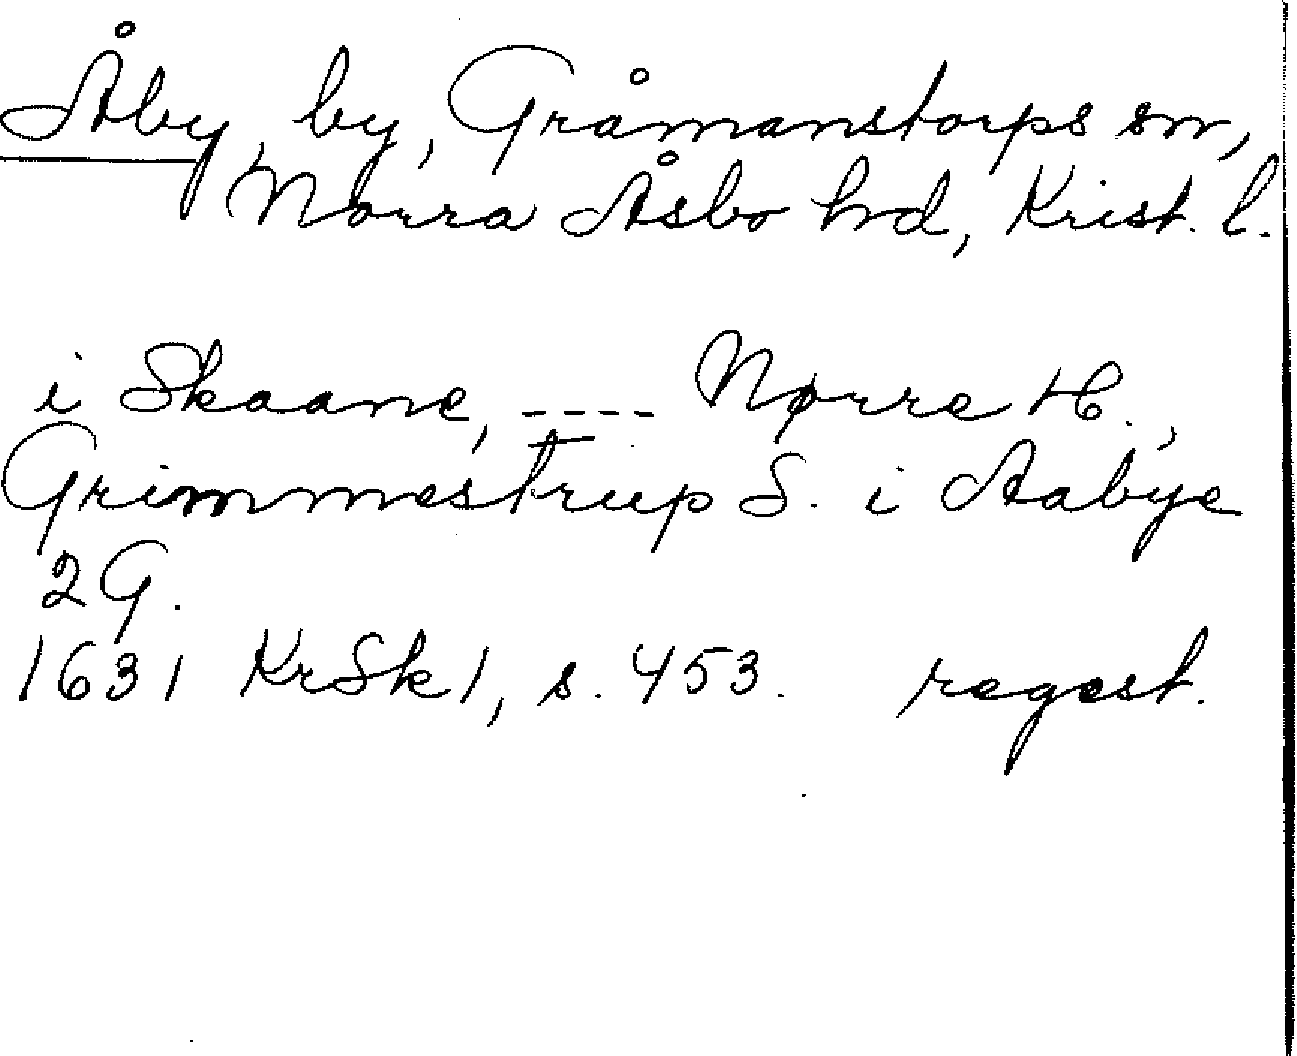 Åby, by, Gråmanstorps sn,
Norra Åsbo hd, Krist. l.
i Skaane, ---- Nørre H.,
Grimmestrup S. i Aabye
2 G.
1631 KrSk 1, s. 453. regest.